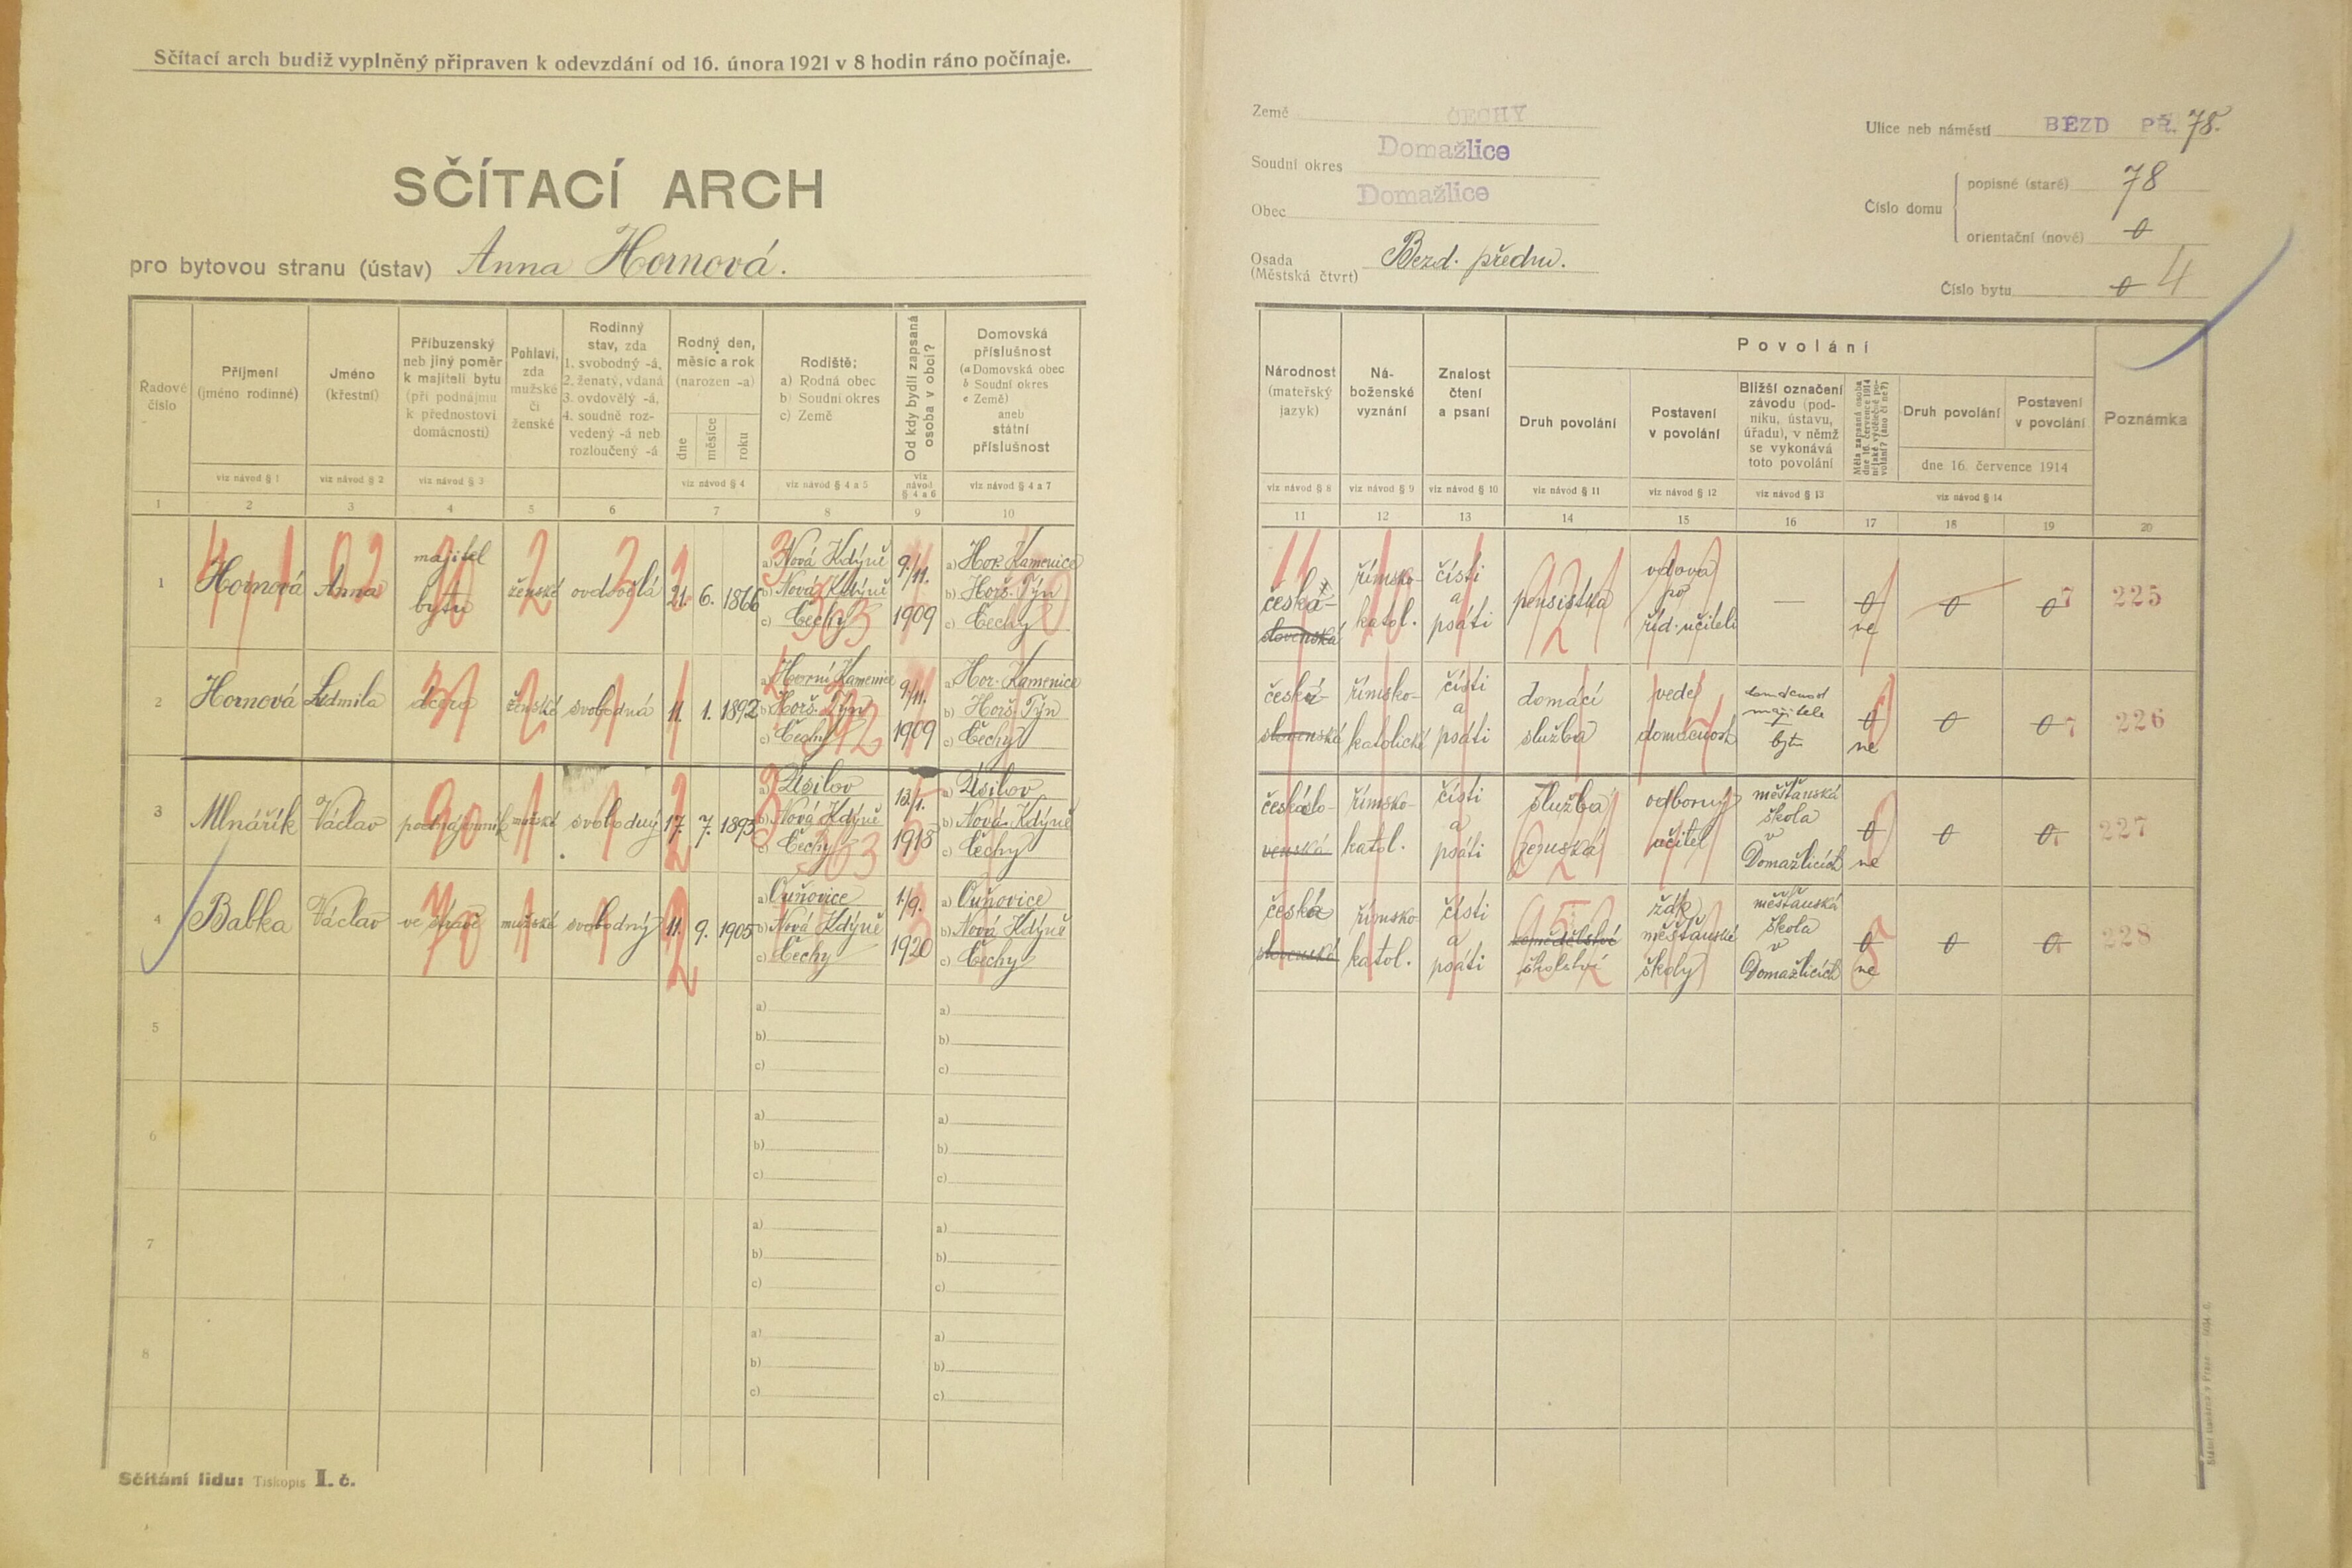 Sčítací arch budiž vyplněný připraven k odevzdání od 16. února 1921 v 8 hodin ráno počínaje.
SČÍTACÍ ARCH
pro bytovou stranu (ústav) Anna Hornová.
Řadové číslo
Příjmení (jméno rodinné)
Jméno (křestní)
Příbuzenský neb jiný poměr k majiteli bytu (při podnájmu k přednostovi domácnosti)
Pohlaví, zda mužské či ženské
Rodinný stav, zda 1. svobodný -á, 2. ženatý, vdaná 3. ovdovělý -á, 4. soudně rozvedený -á neb rozloučený -á
Rodný den, měsíc a rok (narozen -a)
dne měsíce roku
Rodiště: a) Rodná obec b) Soudní okres c) Země
Od kdy bydlí zapsaná osoba v obci?
Domovská příslušnost (a Domovská obec b Soudní okres c Země) aneb státní příslušnost
viz návod § 1 viz návod § 2 viz návod § 3 viz návod § 4 viz návod § 4 a 5 viz návod § 4 a 6 viz návod § 4 a 7
1 2 3 4 5 6 7 8 9 10
1 Hornová Anna majitel bytu ženské ovdovělá 21. 6. 1866 a) Nová Kdýně b) Nová Kdýně c) Čechy 9./11. 1909 a) Hor. Kamenice b) Horš. Týn c) Čechy
2 Hornová Ludmila dcera ženské svobodná 11. 1. 1892 a) Horní Kamenice b) Horš. Týn c) Čechy 9./11. 1909 a) Hor. Kamenice b) Horš. Týn c) Čechy
3 Mlnářík Václav podnájemník mužské svobodný 17. 7. 1893 a) Úsilov b) Nová Kdýně c) Čechy 13./1. 1918 a) Úsilov b) Nová Kdýně c) Čechy
4 Babka Václav ve stravě mužské svobodný 11. 9. 1905 a) Ouňovice b) Nová Kdýně c) Čechy 1./9. 1920 a) Ouňovice b) Nová Kdýně c) Čechy
5 a) b) c) a) b) c)
6 a) b) c) a) b) c)
7 a) b) c) a) b) c)
8 a) b) c) a) b) c)
Sčítání lidu: Tiskopis I. č.
Země ČECHY
Soudní okres Domažlice
Obec Domažlice
Osada (Městská čtvrt) Bezd. předm.
Ulice neb náměstí BEZD PŘ. 78.
Číslo domu
popisné (staré) 78
orientační (nové) 0
Číslo bytu 0 4
Národnost (mateřský jazyk)
Náboženské vyznání
Znalost čtení a psaní
Povolání
Druh povolání
Postavení v povolání
Bližší označení závodu (podniku, ústavu, úřadu), v němž se vykonává toto povolání
Měla zapsaná osoba dne 16. července 1914 nějaké výdělečné povolání? (ano či ne?)
Druh povolání
Postavení v povolání
dne 16. července 1914
Poznámka
viz návod § 8 viz návod § 9 viz návod § 10 viz návod § 11 viz návod § 12 viz návod § 13 viz návod § 14
11 12 13 14 15 16 17 18 19 20
česká- slovenská římsko- katol. čísti a psáti pensistka vdova po říd. učiteli — 0 ne 0 0 7 225
česká- slovenská římsko- katolické čísti a psáti domácí služba vede domácnost domácnost majitele bytu 0 ne 0 0 7 226
českoslo- venská římsko- katol. čísti a psáti služba zemská odborný učitel měšťanská škola v Domažlicích 0 ne 0 0 227
česká slovenská římsko katol. čísti a psáti zemědělství školství žák měšťanské školy měšťanská škola v Domažlicích 0 ne 0 0 228